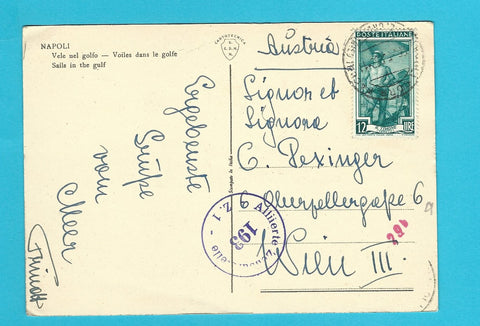 NAPOLI
Vele nel golfo — Voiles dans le golfe
Sails in the gulf
Ergebenste
Grüße
vom
Meer
Austria
Signor et
Signora
C. Pexinger
6 Oberzellergaße 6
Wien III.
POSTE ITALIANE
12 LIRE
Alliierte Zensurstelle
Z. 1
193
162